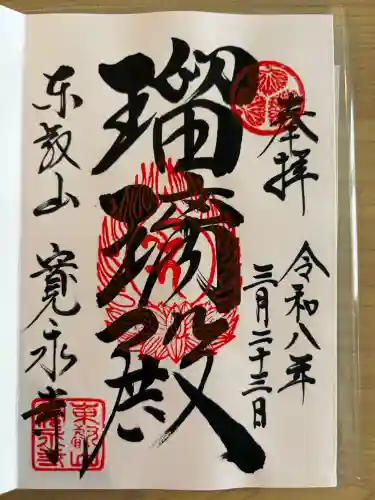 奉拝
令和八年
三月二十三日
瑠璃殿
东叡山
寛永寺
東叡山
寛永寺